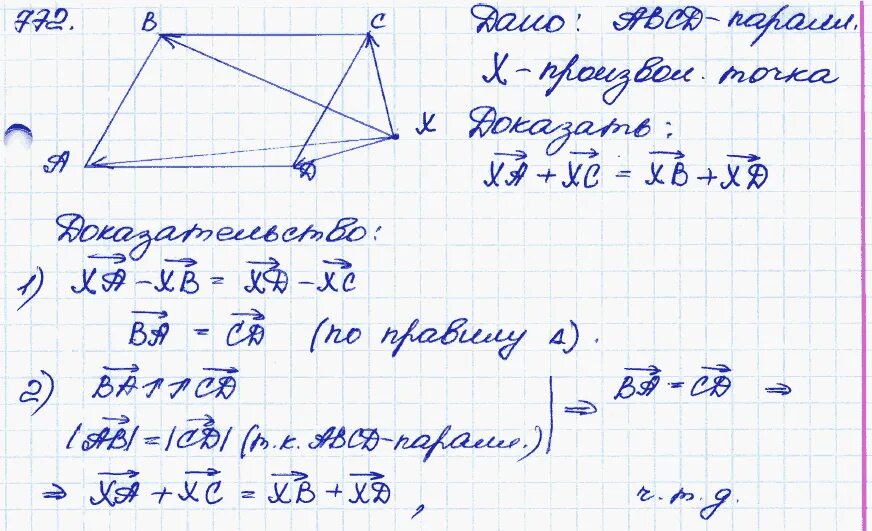 772.
B
C
A
D
X
Дано: ABCD-паралл.
X-произвол. точка
Доказать:
XA + XC = XB + XD
Доказательство:
1) XA - XB = XD - XC
BA = CD (по правилу Δ).
2) BA↑↑CD
|AB| = |CD| (т.к. ABCD-паралл.)
⇒ BA = CD ⇒
⇒ XA + XC = XB + XD, ч.т.д.